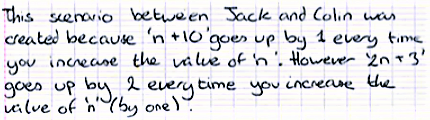 This scenario between Jack and Colin was
created because 'n+10' goes up by 1 every time
you increase the value of 'n'. However '2n+3'
goes up by 2 every time you increase the
value of 'n' (by one).